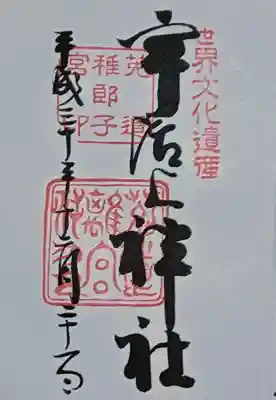 世界文化遺産
宇治上神社
菟道
稚郎子
宮印
離宮
平成二十年十一月二十日